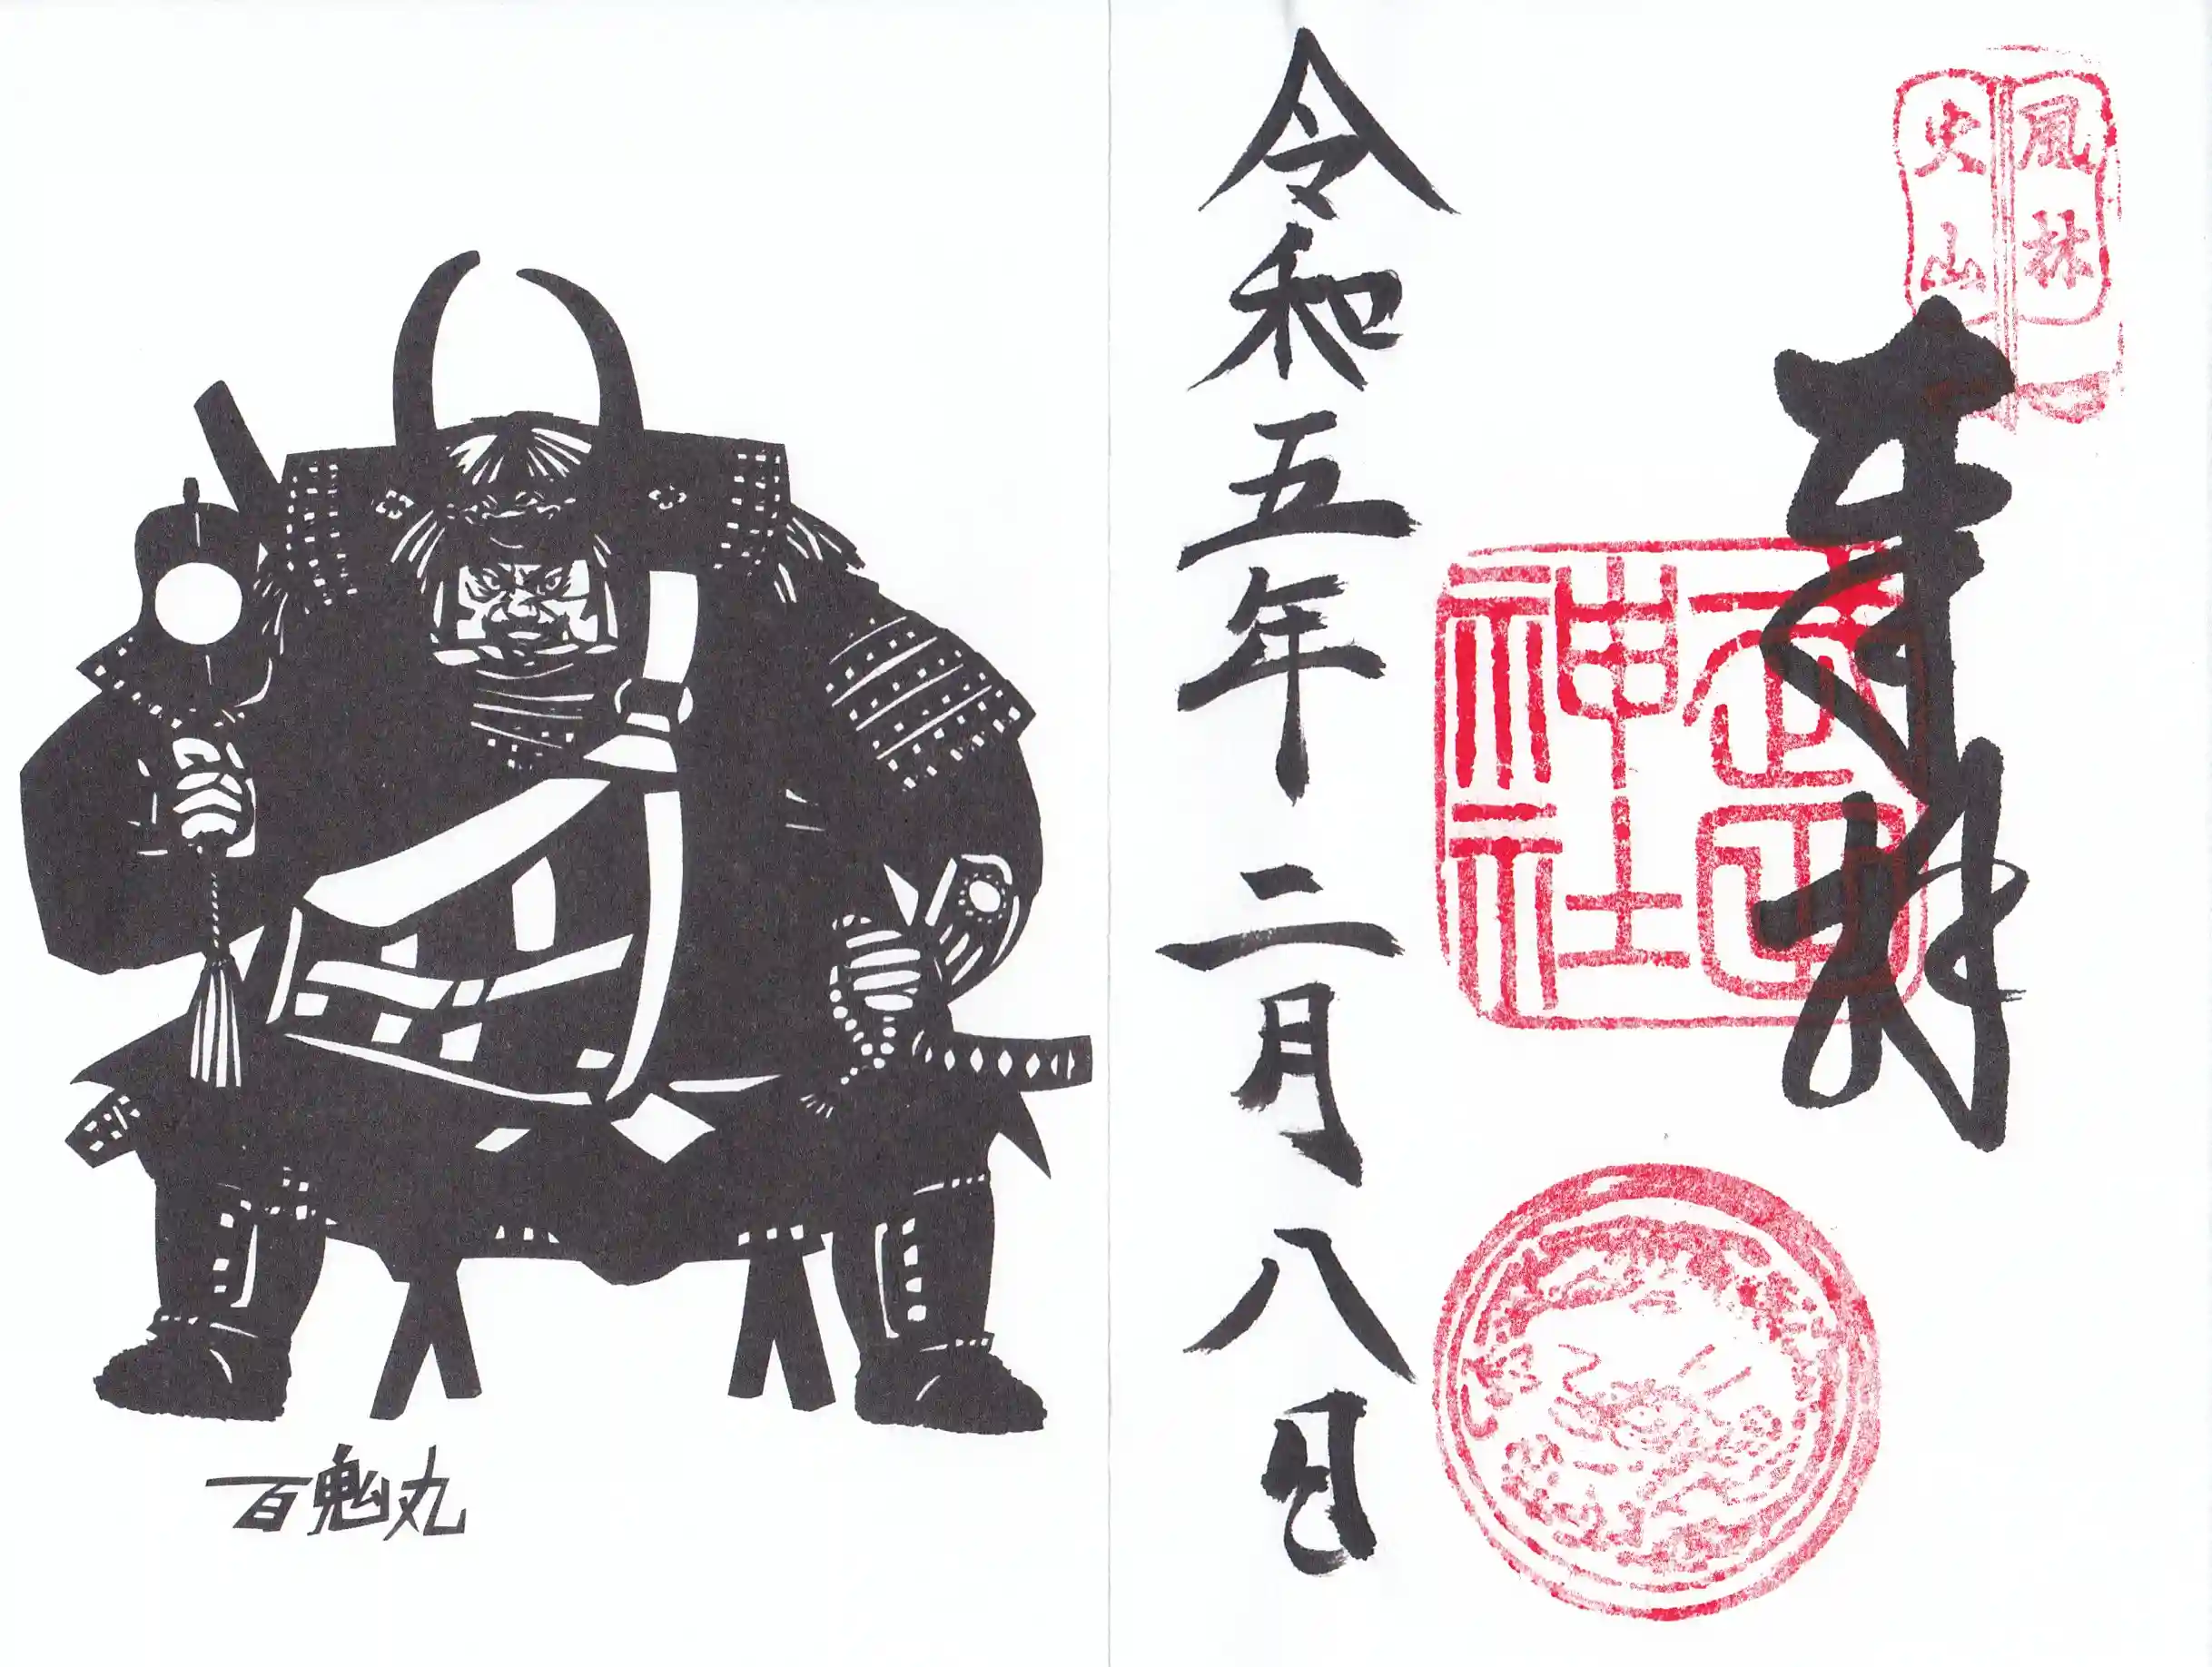 風林
火山
奉拝
武田
神社
令和五年二月八日
百鬼丸